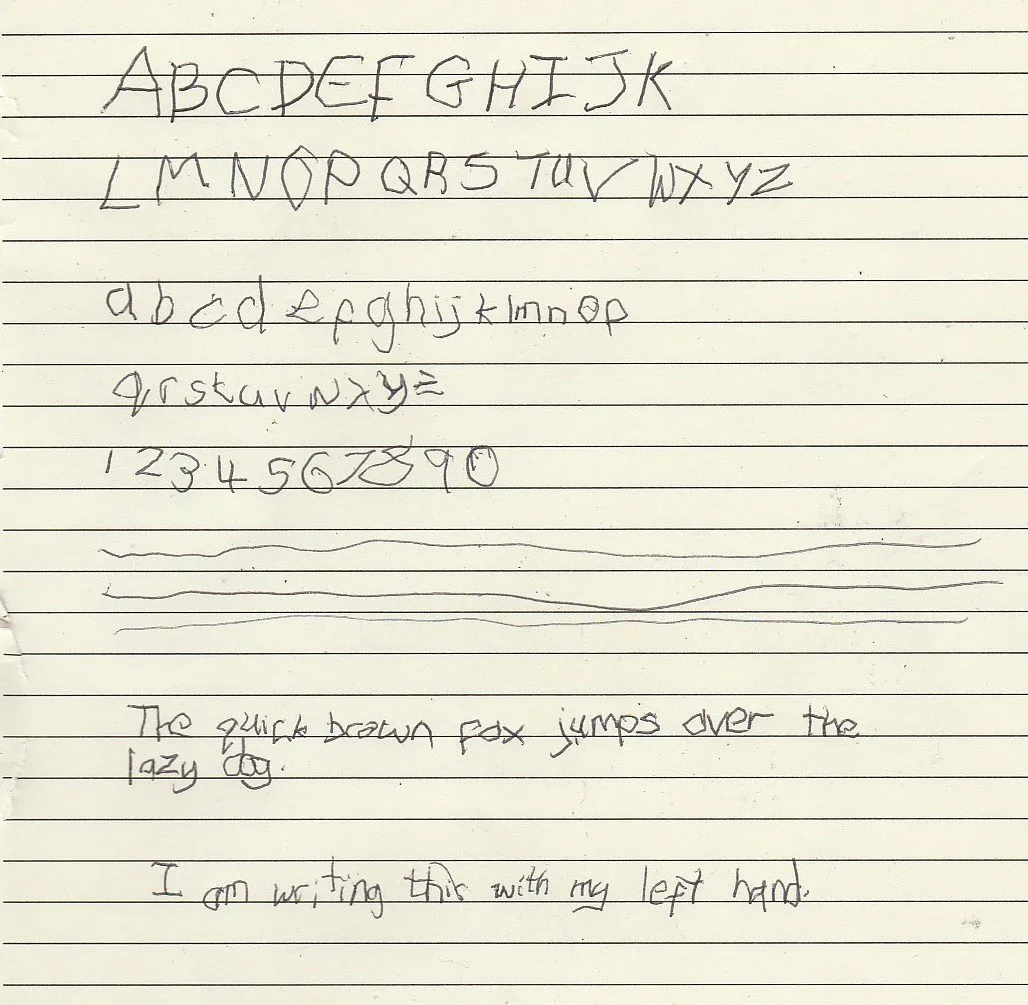 A B C D E F G H I J K
L M N O P Q R S T U V W X Y Z
a b c d e f g h i j k l m n o p
q r s t u v w x y z
1 2 3 4 5 6 7 8 9 0
The quick brown fox jumps over the
lazy dog.
I am writing this with my left hand.